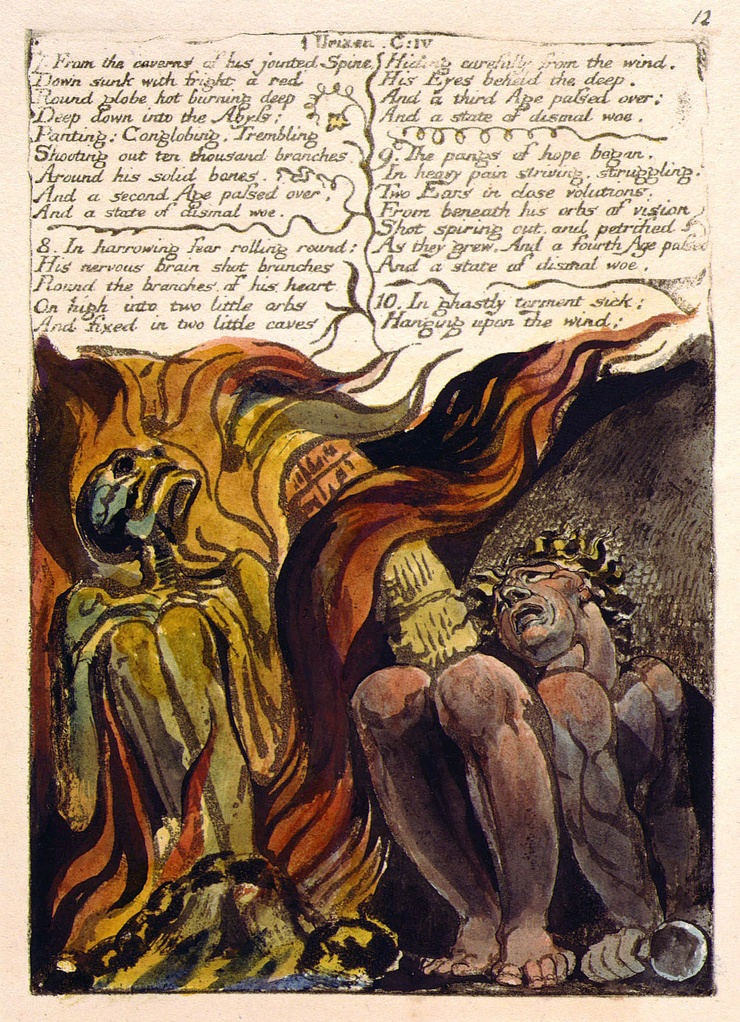 12
1 Urizen. C:IV
7. From the caverns of his jointed Spine,
Down sunk with fright a red
Round globe hot burning deep
Deep down into the Abyss:
Panting: Conglobing, Trembling
Shooting out ten thousand branches
Around his solid bones.
And a second Age passed over,
And a state of dismal woe.
8. In harrowing fear rolling round:
His nervous brain shot branches
Round the branches of his heart
On high into two little orbs
And fixed in two little caves
Hiding carefully from the wind,
His Eyes beheld the deep,
And a third Age passed over:
And a state of dismal woe.
9. The pangs of hope began,
In heavy pain striving, struggling.
Two Ears in close volutions,
From beneath his orbs of vision
Shot spiring out and petrified
As they grew. And a fourth Age passed
And a state of dismal woe.
10. In ghastly torment sick:
Hanging upon the wind: